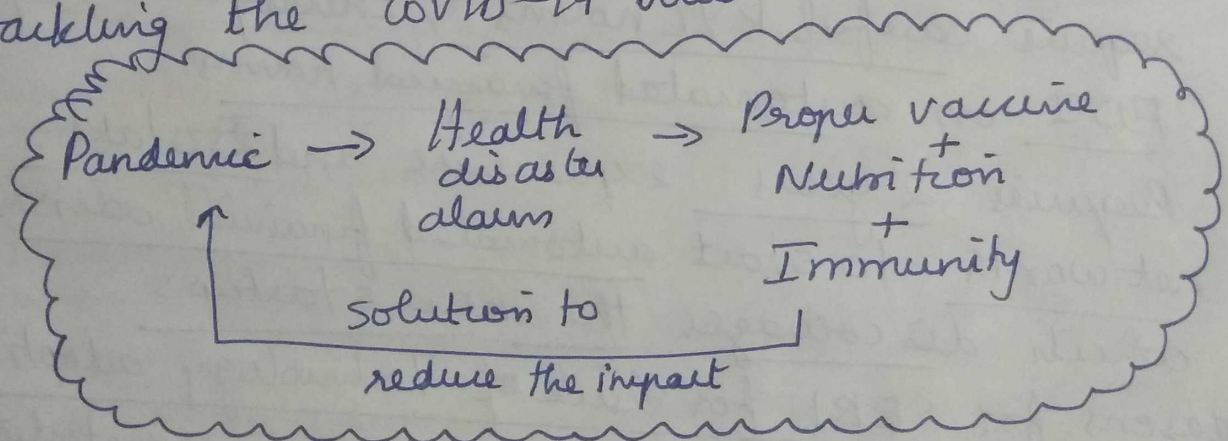 tackling the COVID-19
Pandemic → Health disaster alarm → Proper vaccine
+
Nutrition
+
Immunity
solution to
reduce the impact